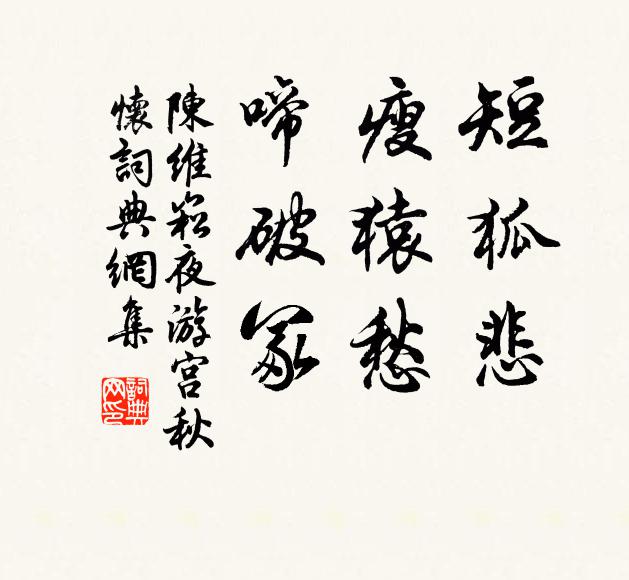 短狐悲
瘦猿愁
啼破冢
陳維崧夜游宮秋
懷詞典網集
詞典
网印